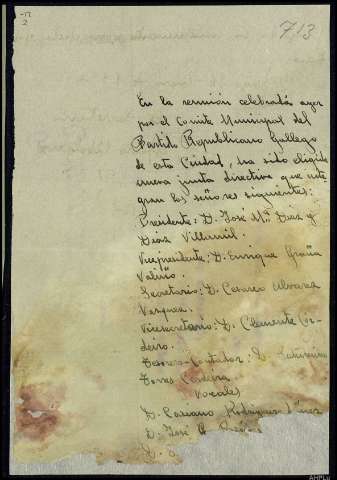 713
En la reunión celebrada ayer
por el Comite Municipal del
Partido Republicano Gallego
de esta Ciudad, ha sido eligida
nueva junta directiva que inte
gran los señores siguientes:
Presidente: D. José Mª Diaz y
Diaz Villamil.
Vicepresidente: D. Enrique Graña
Valiño.
Secretario: D. Cesareo Alvarez
Vazquez.
Vicesecretario: D. Clemente Cor-
deiro.
Tesorero-Contador: D.
Torres
Vocales
D. Casiano Rodriguez
D. José
D.
AHPLu